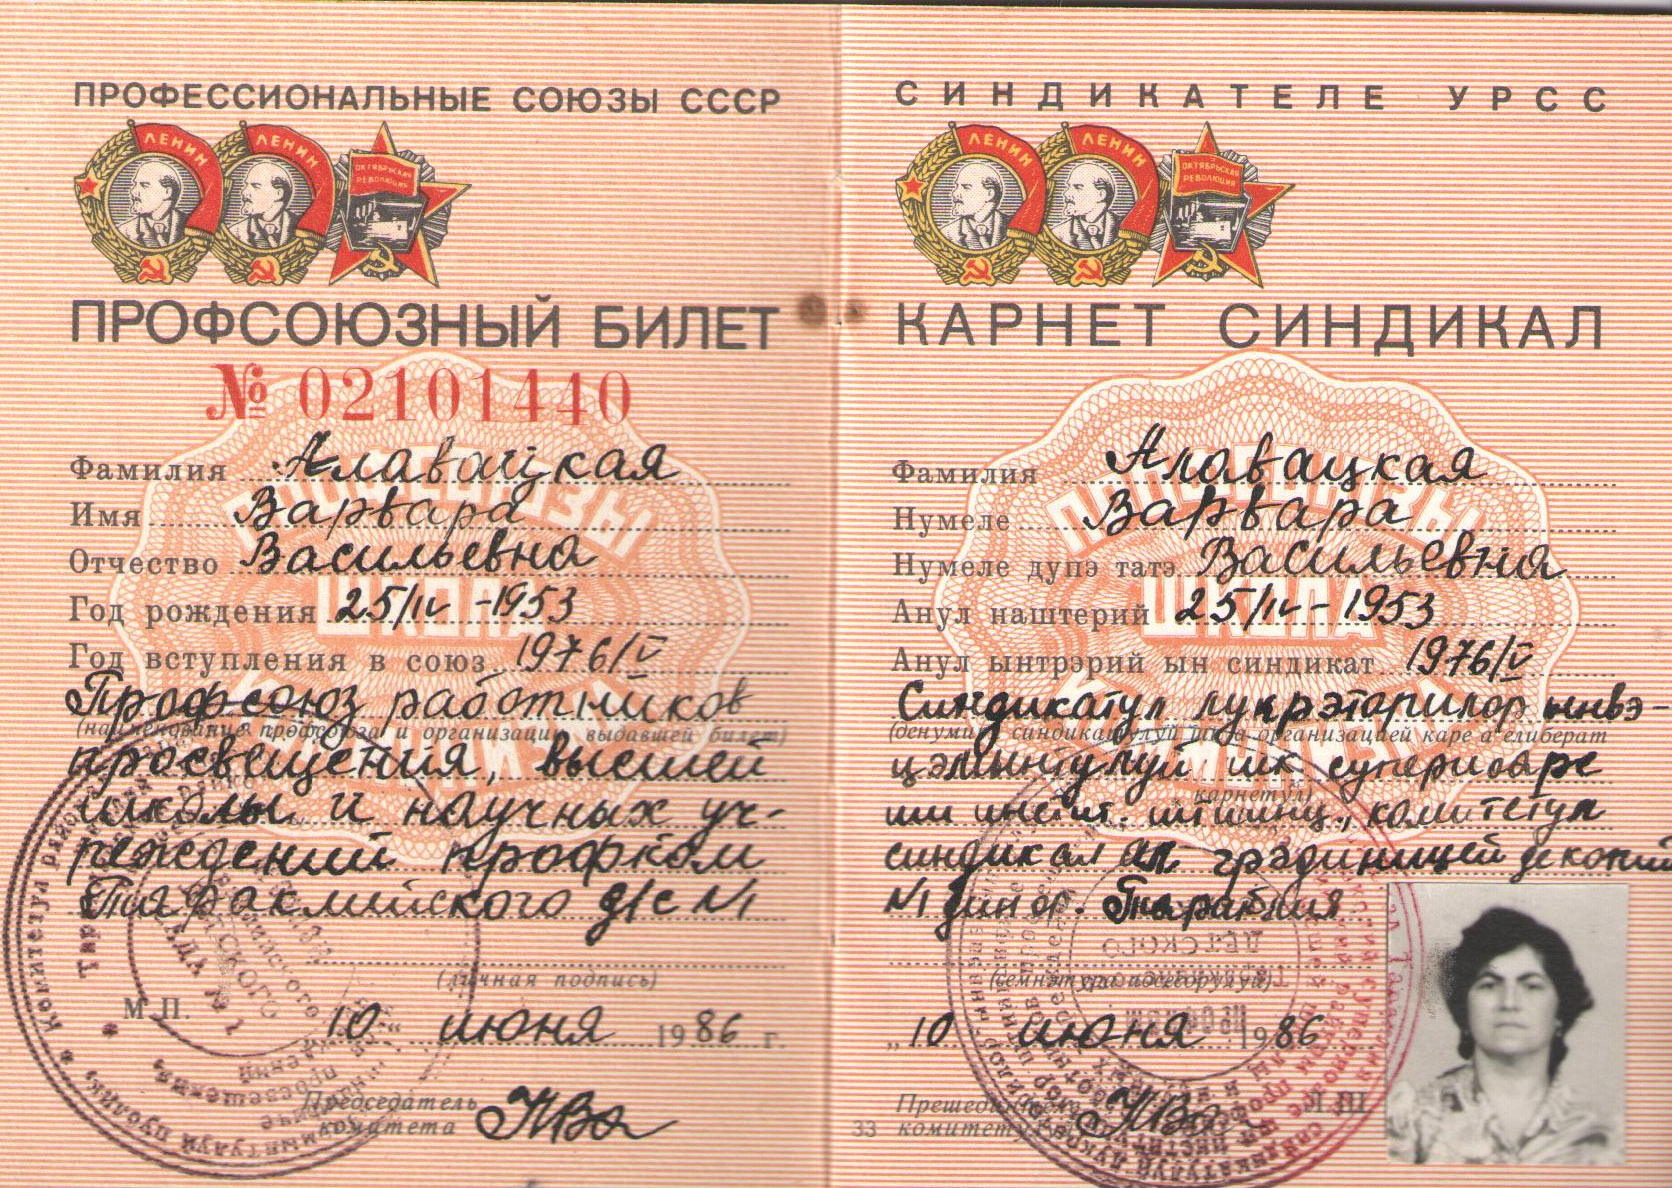 ПРОФЕССИОНАЛЬНЫЕ СОЮЗЫ СССР
ЛЕНИН ЛЕНИН ОКТЯБРЬСКАЯ РЕВОЛЮЦИЯ
ПРОФСОЮЗНЫЙ БИЛЕТ
№ 02101440
Фамилия Алавацкая
Имя Варвара
Отчество Васильевна
Год рождения 25/IV-1953
Год вступления в союз 1976/V
Профсоюз работников
(наименование профсоюза и организации, выдавшей билет)
просвещения, высшей
школы и научных уч-
реждений профком
Тараклийского д/с №1
(личная подпись)
М.П.
10 июня 1986 г.
Председатель
комитета
СИНДИКАТЕЛЕ УРСС
ЛЕНИН ЛЕНИН ОКТЯБРЬСКАЯ РЕВОЛЮЦИЯ
КАРНЕТ СИНДИКАЛ
Фамилия Алавацкая
Нумеле Варвара
Нумеле дупэ татэ Васильевна
Анул наштерий 25/IV-1953
Анул ынтрэрий ын синдикат 1976/V
Синдикатул лукрэторилор ынвэ-
(денумиря синдикатулуй ши а организацией каре а елиберат
цэмынтулуй шк супериоаре
карнетул)
ши инст. штиинц., комитетул
синдикал ал грэдиницей де копий
№1 дин ор. Тараклия
(семнэтура посесорулуй)
„10 июня 1986
Л.Ш.
Прешединтеле
33 комитетулуй